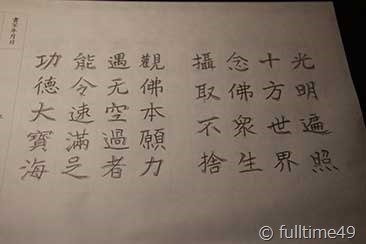 光明遍照
十方世界
念佛衆生
攝取不捨
觀佛本願力
遇无空過者
能令速滿足
功德大寶海
書写年月日
© fulltime49